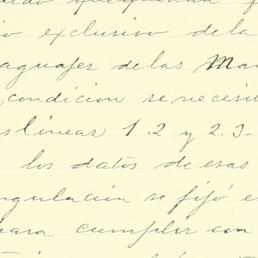 exclusivo de la
de las Mar
condicion se necesi
s líneas 1.2 y 2.3-
los datos de esas
ngulación se fijó e
para cumplir con